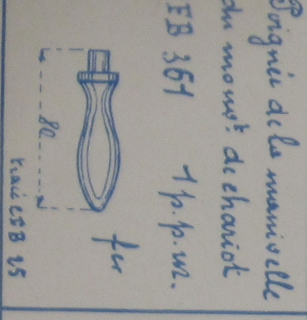 Poignée de la manivelle
du mouvt. de chariot
EB 361 1 p.p.m.
80
fer